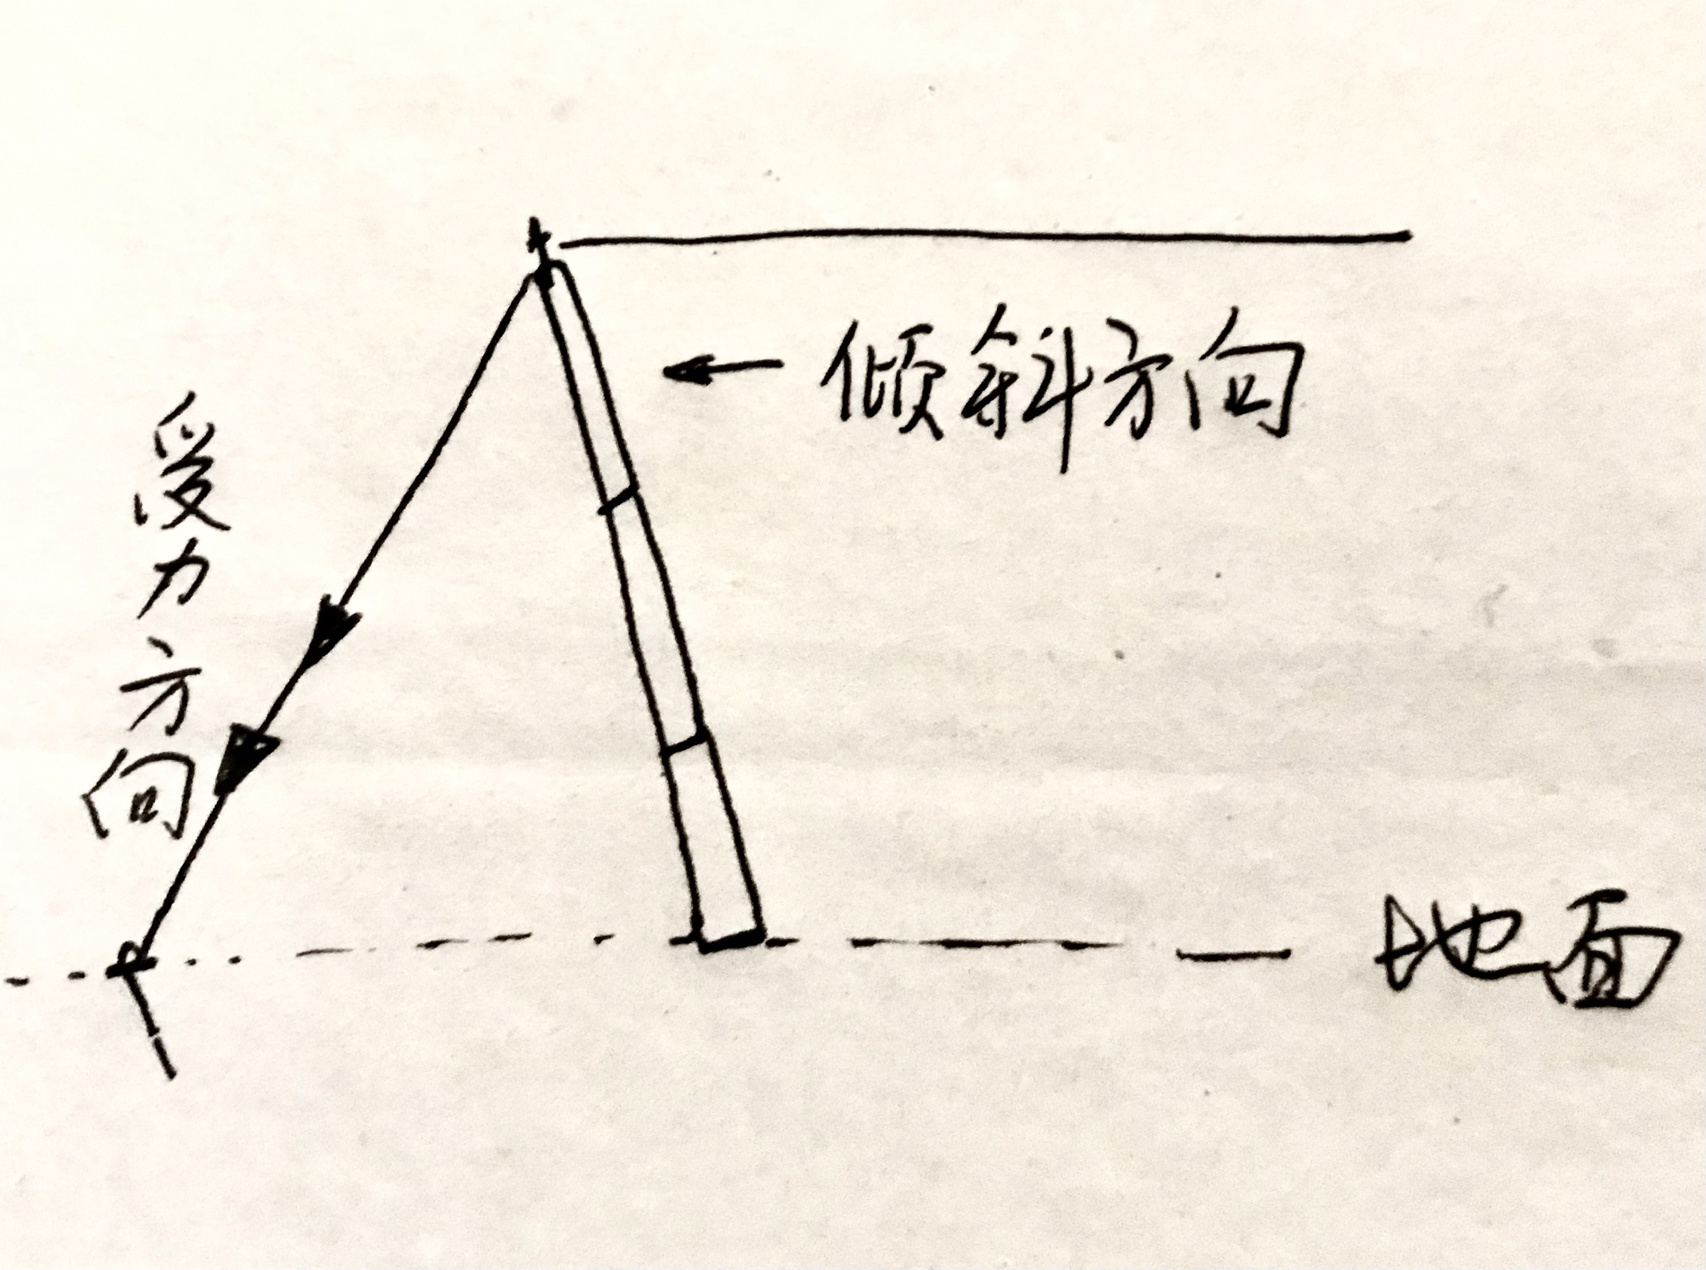 倾斜方向
受力方向
地面